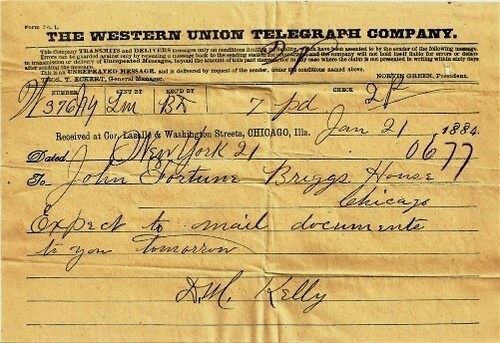 Form No. 1.
THE WESTERN UNION TELEGRAPH COMPANY.
This Company TRANSMITS and DELIVERS messages only on conditions limiting its liability, which have been assented to by the sender of the following message.
Errors can be guarded against only by repeating a message back to the sending station for comparison, and the company will not hold itself liable for errors or delays
in transmission or delivery of Unrepeated Messages, beyond the amount of tolls paid thereon, nor in any case where the claim is not presented in writing within sixty days
after sending the message.
This is an UNREPEATED MESSAGE, and is delivered by request of the sender, under the conditions named above.
THOS. T. ECKERT, General Manager. NORVIN GREEN, President.
NUMBER SENT BY REC'D BY CHECK
7 pd
Received at Cor. Lasalle & Washington Streets, CHICAGO, Ills. Jan 21 1884
Dated New York 21 0677
To John Fortune Briggs House
Chicago
Expect to mail documents
to you tomorrow
D.M. Kelly